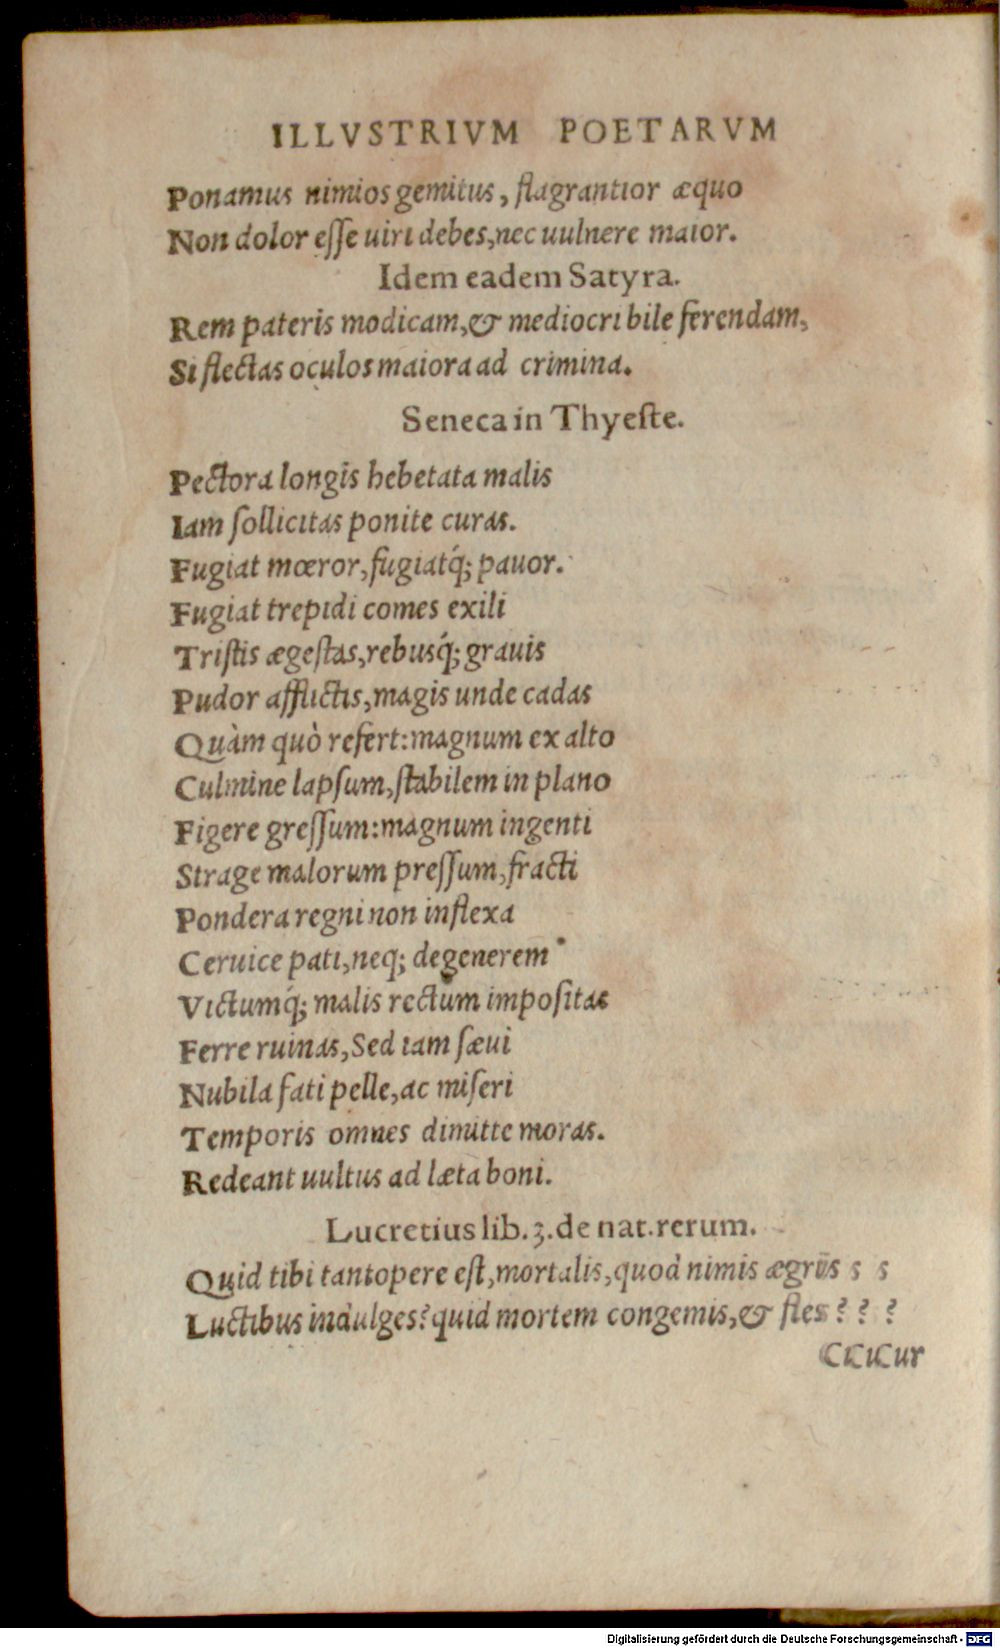 ILLVSTRIVM POETARVM
Ponamus nimios gemitus, flagrantior æquo
Non dolor eſſe uiri debes, nec uulnere maior.
Idem eadem Satyra.
Rem pateris modicam, & mediocri bile ferendam,
Si flectas oculos maiora ad crimina.
Seneca in Thyeſte.
Pectora longis hebetata malis
Iam ſollicitas ponite curas.
Fugiat mœror, fugiatq́; pauor.
Fugiat trepidi comes exili
Triſtis ægeſtas, rebusq́; grauis
Pudor afflictis, magis unde cadas
Quàm quò refert: magnum ex alto
Culmine lapſum, ſtabilem in plano
Figere greſſum: magnum ingenti
Strage malorum preſſum, fracti
Pondera regni non inflexa
Ceruice pati, neq; degenerem
Victumq́; malis rectum impoſitas
Ferre ruinas, Sed iam ſæui
Nubila fati pelle, ac miſeri
Temporis omnes dimitte moras.
Redeant uultus ad læta boni.
Lucretius lib. 3. de nat. rerum.
Quid tibi tantopere eſt, mortalis, quod nimis ægris s s
Luctibus indulges? quid mortem congemis, & fles? ? ?
Cur
Digitalisierung gefördert durch die Deutsche Forschungsgemeinschaft - DFG